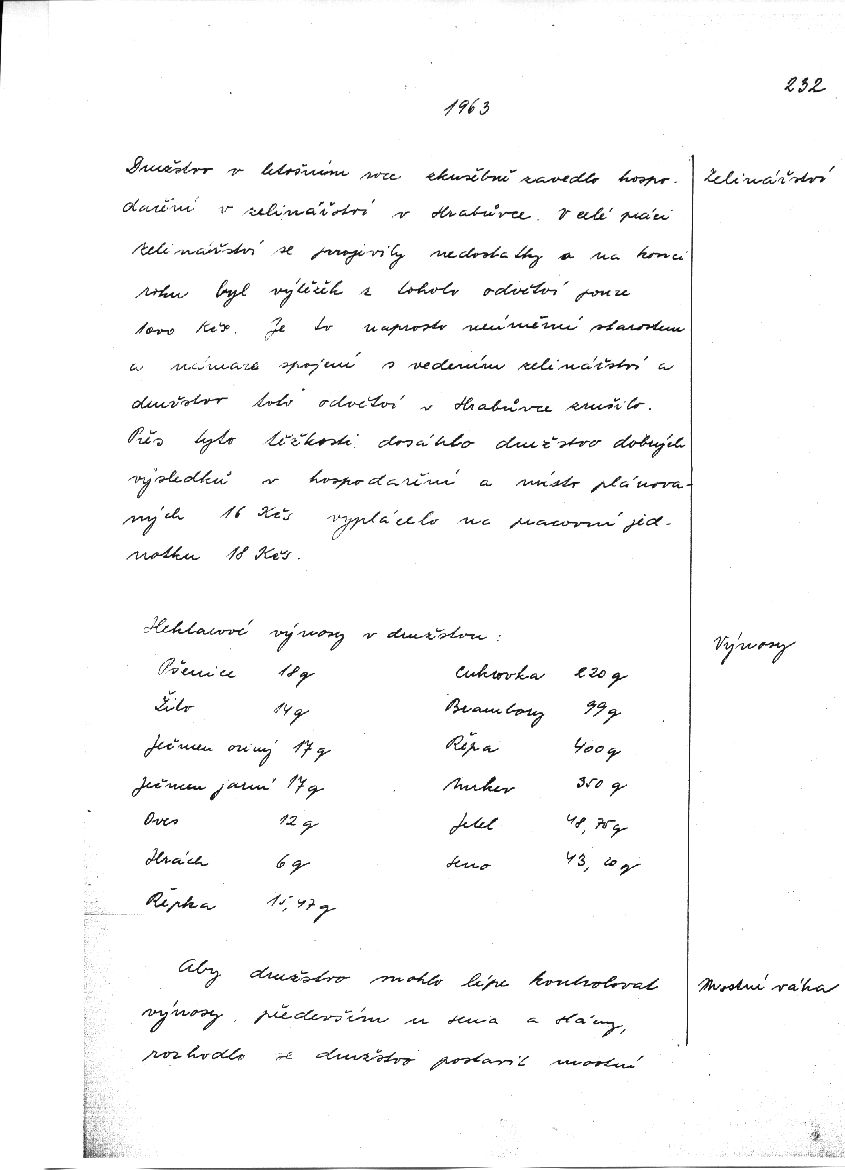 232
1963
Družstvo v letošním roce zkušebně zavedlo hospo-
Zelinářství
daření v zelinářství v Hrabůvce. V celé práci
zelinářství se projivily nedostatky a na konci
roku byl výtěžek z tohoto odvětví pouze
1000 Kčs. Je to naprosto neúměrní starostem
a námaze spojení s vedením zelinářství a
družstvo toto odvětví v Hrabůvce zrušilo.
Přes tyto těžkosti dosáhlo družstvo dobrých
výsledků v hospodaření a místo plánova-
ných 16 Kčs vyplácelo na pracovní jed-
notku 18 Kčs.
Hektarové výnosy v družstvu:
Výnosy
Pšenice 18 q Cukrovka 220 q
Žito 14 q Brambory 99 q
Ječmen ozimý 17 q Řěpa 400 q
Ječmen jarní 17 q Mrkev 350 q
Oves 12 q Jetel 48,75 q
Hrách 6 q Seno 43,20 q
Řěpka 15,47 q
Aby družstvo mohlo lépe kontrolovat
Mostní váha
výnosy, především u sena a slámy,
rozhodlo se družstvo postavit mostní